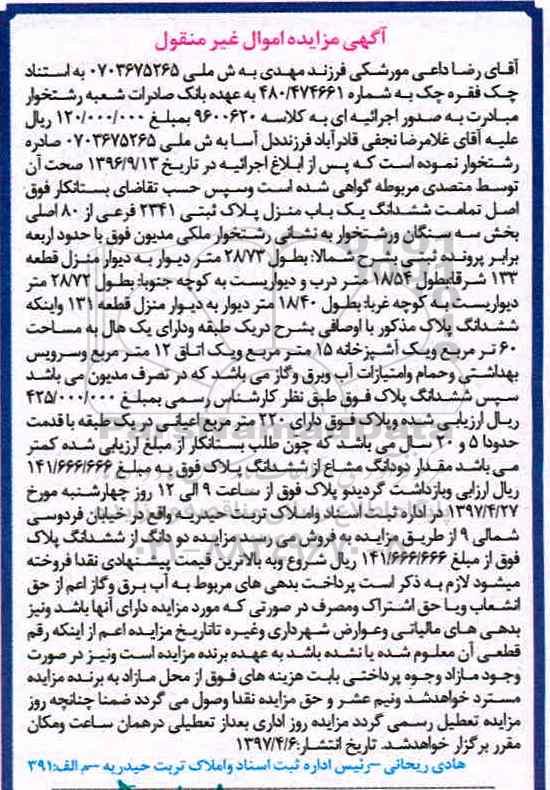 آگهی مزایده اموال غیر منقول
آقای رضا داعی مورشکی فرزند مهدی به ش ملی ۰۷۰۳۶۷۵۲۶۵ به استناد
چک فقره چک به شماره ۴۸۰/۴۷۴۶۶۱ به عهده بانک صادرات شعبه رشتخوار
مبادرت به صدور اجرائیه ای به کلاسه ۹۶۰۰۶۲۰ بمبلغ ۱۲۰/۰۰۰/۰۰۰ ریال
علیه آقای غلامرضا نجفی قادرآباد فرزنددل آسا به ش ملی ۰۷۰۳۶۷۵۲۶۵ صادره
رشتخوار نموده است که پس از ابلاغ اجرائیه در تاریخ ۱۳۹۶/۹/۱۳ صحت آن
توسط متصدی مربوطه گواهی شده است وسپس حسب تقاضای بستانکار فوق
اصل تمامت ششدانگ یک باب منزل پلاک ثبتی ۲۳۴۱ فرعی از ۸۰ اصلی
بخش سه سنگان ورشتخوار به نشانی رشتخوار ملکی مدیون فوق با حدود اربعه
برابر پرونده ثبتی بشرح شمالا: بطول ۲۸/۷۳ متر دیوار به دیوار منزل قطعه
۱۳۳ شرقابطول ۱۸/۵۴ متر درب و دیواریست به کوچه جنوبا: بطول ۲۸/۷۲ متر
دیواریست به کوچه غربا: بطول ۱۸/۴۰ متر دیوار به دیوار منزل قطعه ۱۳۱ واینکه
ششدانگ پلاک مذکور با اوصافی بشرح دریک طبقه ودارای یک هال به مساحت
۶۰ تر مربع ویک آشپزخانه ۱۵ متر مربع ویک اتاق ۱۲ متر مربع وسرویس
بهداشتی وحمام وامتیازات آب وبرق وگاز می باشد که در تصرف مدیون می باشد
سپس ششدانگ پلاک فوق طبق نظر کارشناس رسمی بمبلغ ۴۲۵/۰۰۰/۰۰۰
ریال ارزیابی شده وپلاک فوق دارای ۲۲۰ متر مربع اعیانی در یک طبقه با قدمت
حدودا ۵ و ۲۰ سال می باشد که چون طلب بستانکار از مبلغ ارزیابی شده کمتر
می باشد مقدار دودانگ مشاع از ششدانگ پلاک فوق به مبلغ ۱۴۱/۶۶۶/۶۶۶
ریال ارزابی وبازداشت گردیدو پلاک فوق از ساعت ۹ الی ۱۲ روز چهارشنبه مورخ
۱۳۹۷/۴/۲۷ در اداره ثبت اسناد واملاک تربت حیدریه واقع در خیابان فردوسی
شمالی ۹ از طریق مزایده به فروش می رسد مزایده دو دانگ از ششدانگ پلاک
فوق از مبلغ ۱۴۱/۶۶۶/۶۶۶ ریال شروع وبه بالاترین قیمت پیشنهادی نقدا فروخته
میشود لازم به ذکر است پرداخت بدهی های مربوط به آب برق وگاز اعم از حق
انشعاب ویا حق اشتراک ومصرف در صورتی که مورد مزایده دارای آنها باشد ونیز
بدهی های مالیاتی وعوارض شهرداری وغیره تاتاریخ مزایده اعم از اینکه رقم
قطعی آن معلوم شده یا نشده باشد به عهده برنده مزایده است ونیز در صورت
وجود مازاد وجوه پرداختی بابت هزینه های فوق از محل مازاد به برنده مزایده
مسترد خواهدشد ونیم عشر و حق مزایده نقدا وصول می گردد ضمنا چنانچه روز
مزایده تعطیل رسمی گردد مزایده روز اداری بعداز تعطیلی درهمان ساعت ومکان
مقرر برگزار خواهدشد. تاریخ انتشار: ۱۳۹۷/۴/۶
هادی ریحانی –رئیس اداره ثبت اسناد واملاک تربت حیدریه –م الف:۳۹۱